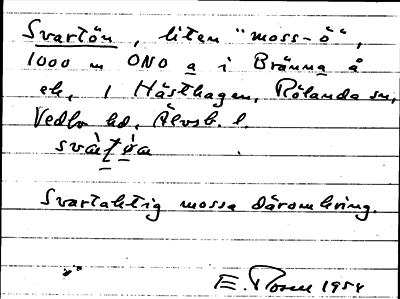 Svartön, liten "moss-ö",
1000 m ONO a i Bränna å
ek, i Hästhagen, Rölanda sn,
Vedbo hd, Älvsb. l.
Svartaktig mossa däromkring.
E. Rosen 1954